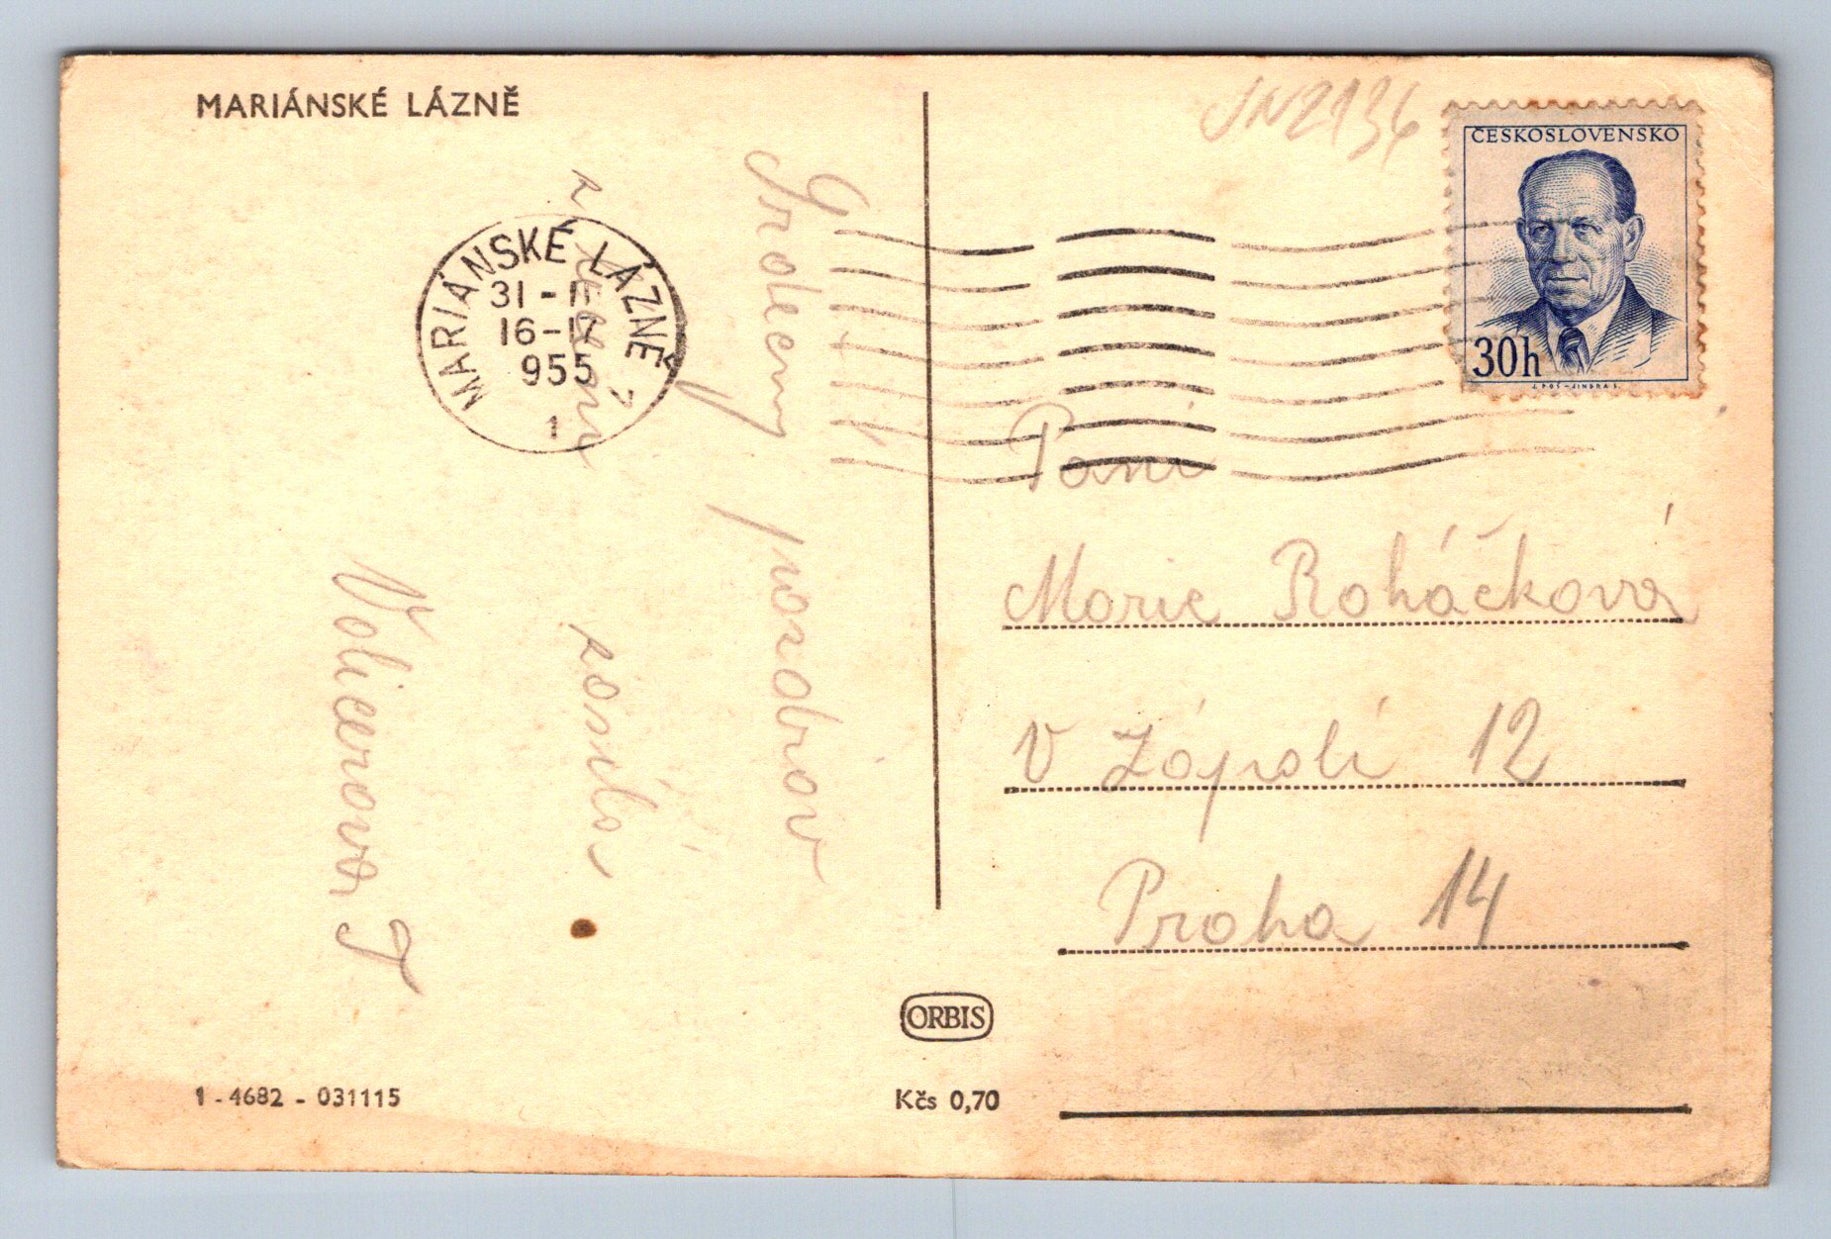 MARIÁNSKÉ LÁZNĚ
JN2136
ČESKOSLOVENSKO
30h
J. POŠ-JINDRA S.
MARIÁNSKÉ LÁZNĚ
31-1
16-17
955
1
Srdečný pozdrav
z
posílá
Volicerova J
Paní
Marie Roháčková
V Zápolí 12
Praha 14
ORBIS
1 - 4682 - 031115
Kčs 0,70